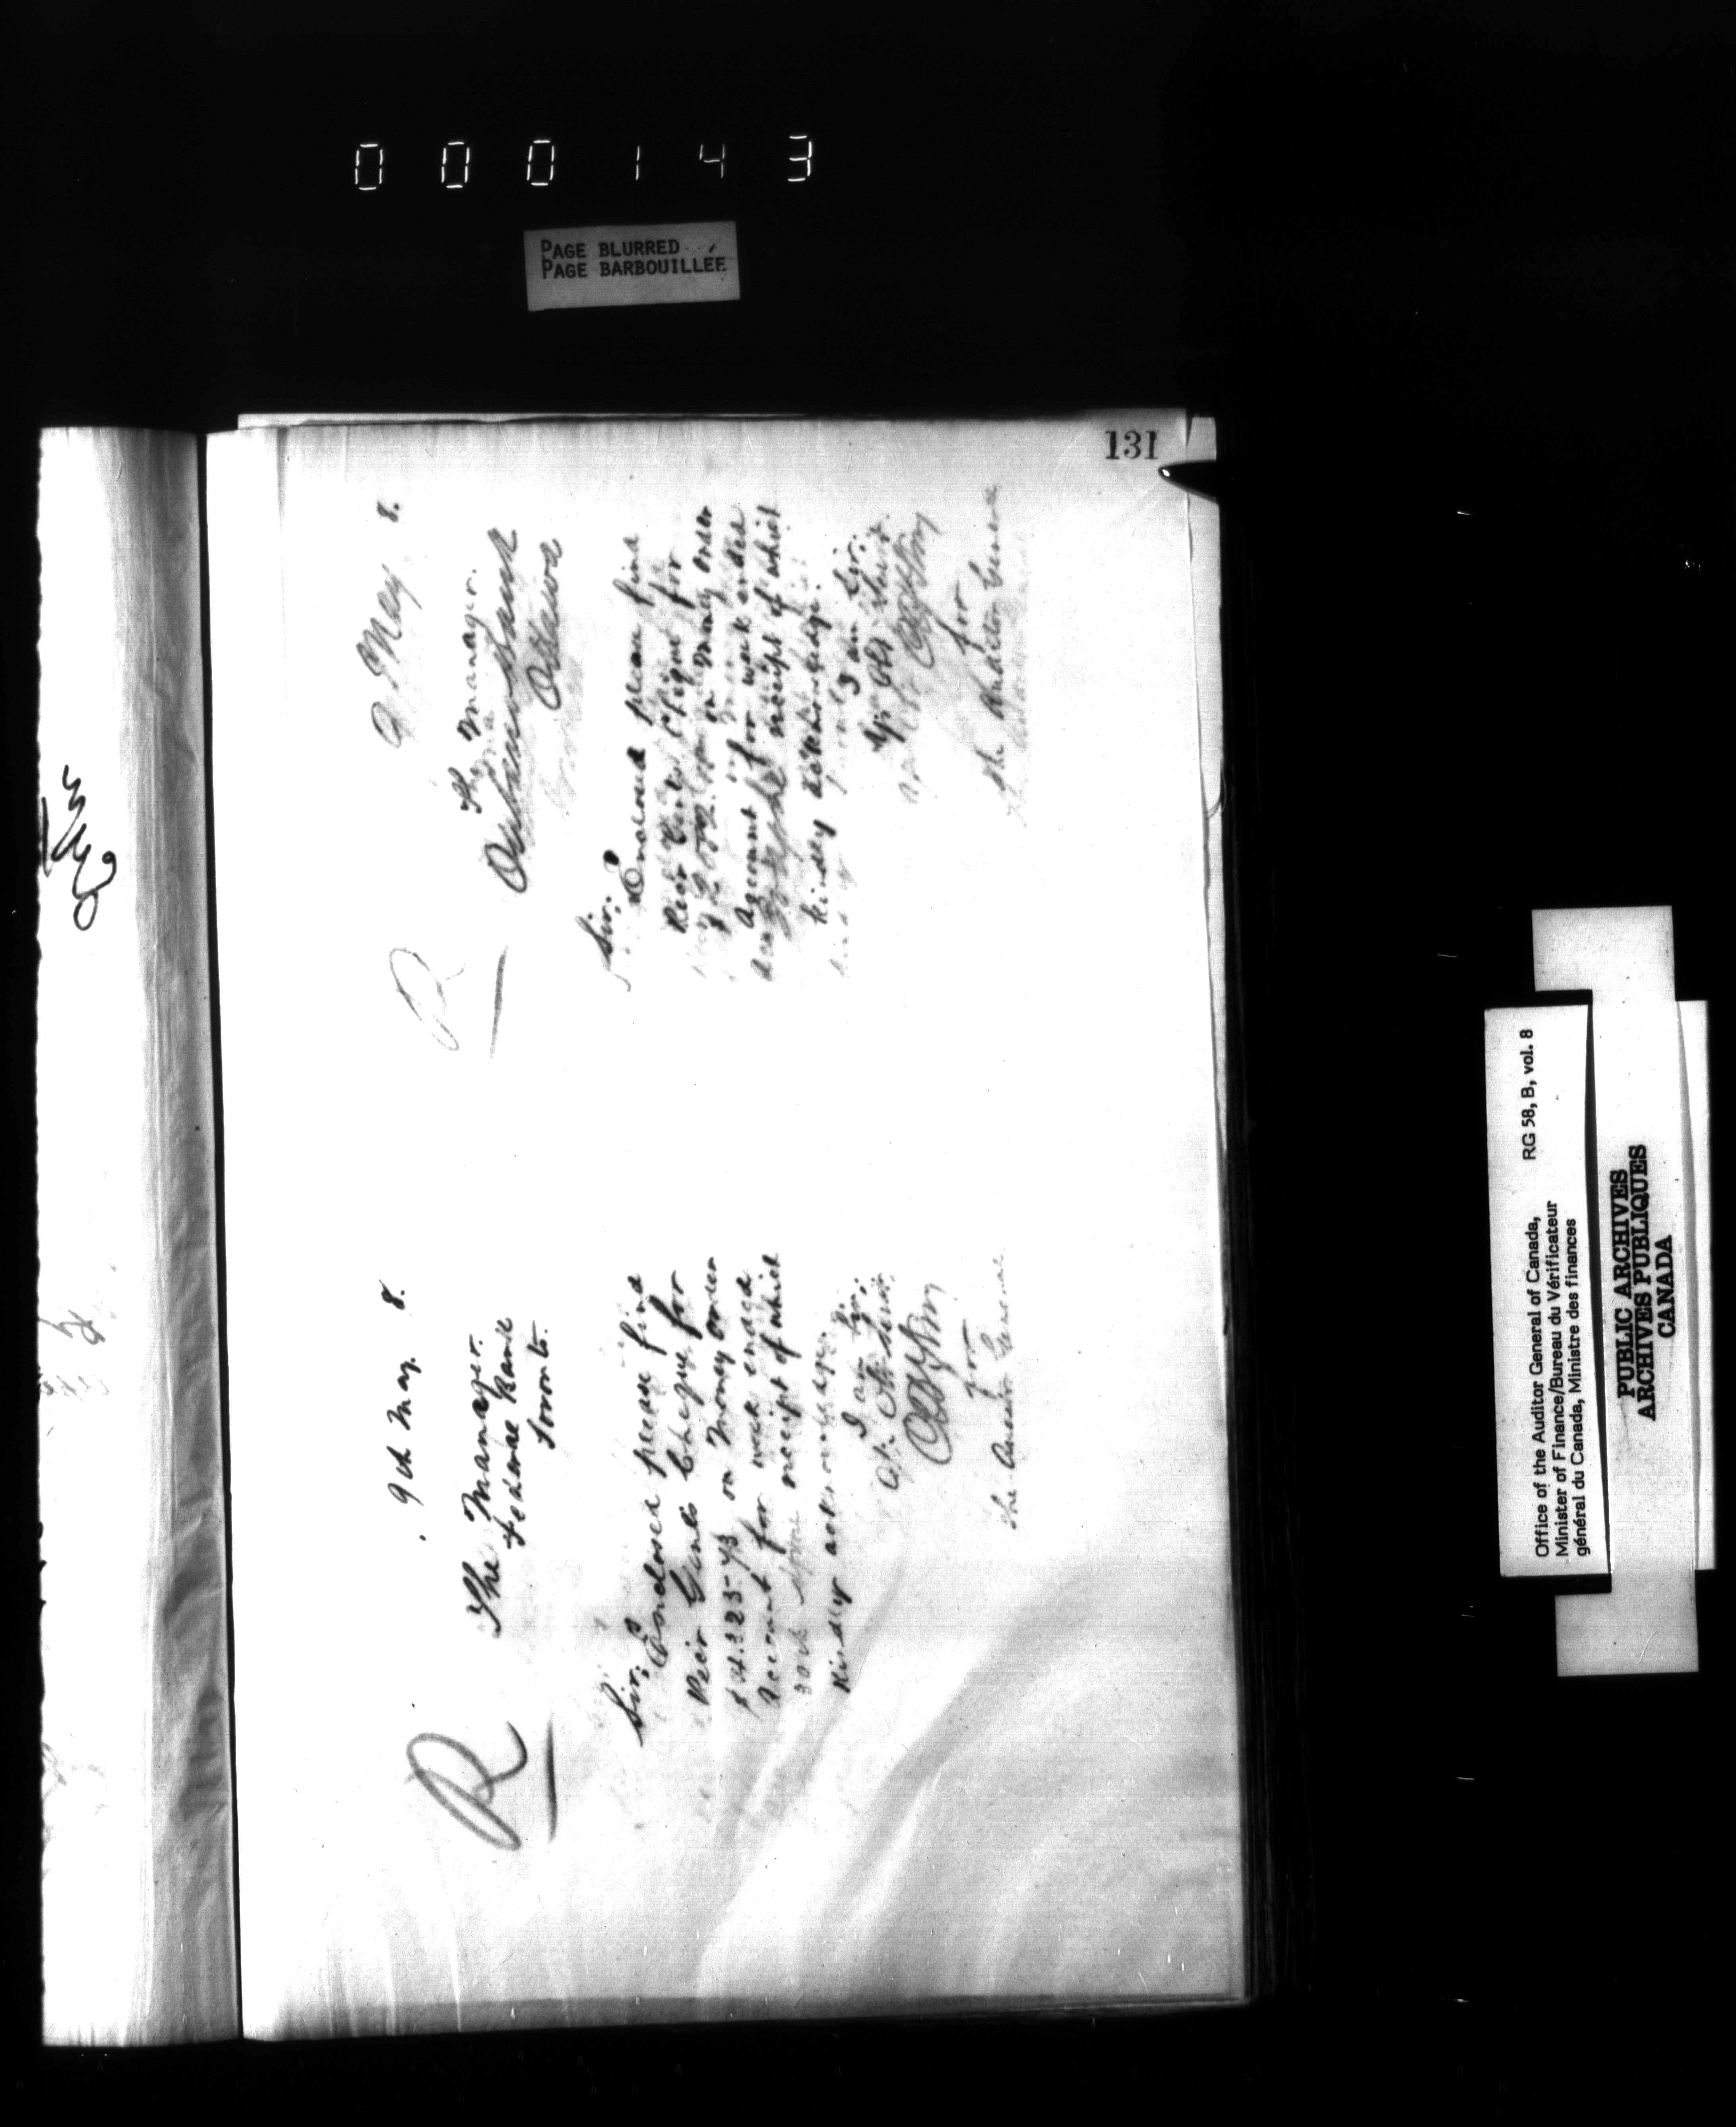 0 0 0 1 4 3
PAGE BLURRED
PAGE BARBOUILLEE
131
R
9th May. 8.
The Manager.
Federal Bank
Toronto.
Sir:
Enclosed please find
Recr Genls Cheque for
$4.325.73 on Money order
account for week ended
30th receipt of which
Kindly acknowledge.
I am Sir;
for
The Auditor General
R
9 May 8.
The Manager.
Bank
Ottawa
Sir:
Enclosed please find
Recr Genls Cheque for
on Money order
account for week ended
receipt of which
Kindly acknowledge.
I am Sir.
Yr Obt Servt.
for
The Auditor General
Office of the Auditor General of Canada, RG 58, B, vol. 8
Minister of Finance/Bureau du Vérificateur
général du Canada, Ministre des finances
PUBLIC ARCHIVES
ARCHIVES PUBLIQUES
CANADA